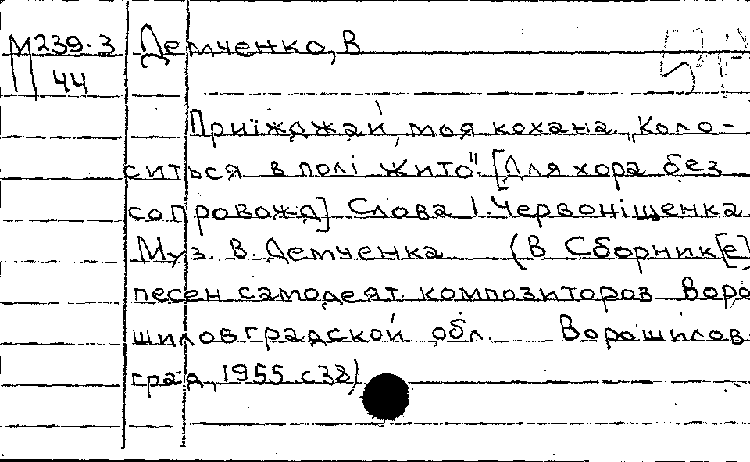 М239-3 Демченко, В
44
Приїжджай, моя кохана „Коло-
ситься в полі жито". [Для хора без
сопровожд] Слова І. Червоніщенка
Муз. В. Демченка (В Сборник[е]
песен самодеят. композиторов Воро
шиловградской обл. Ворошилов
град, 1955 с 38)